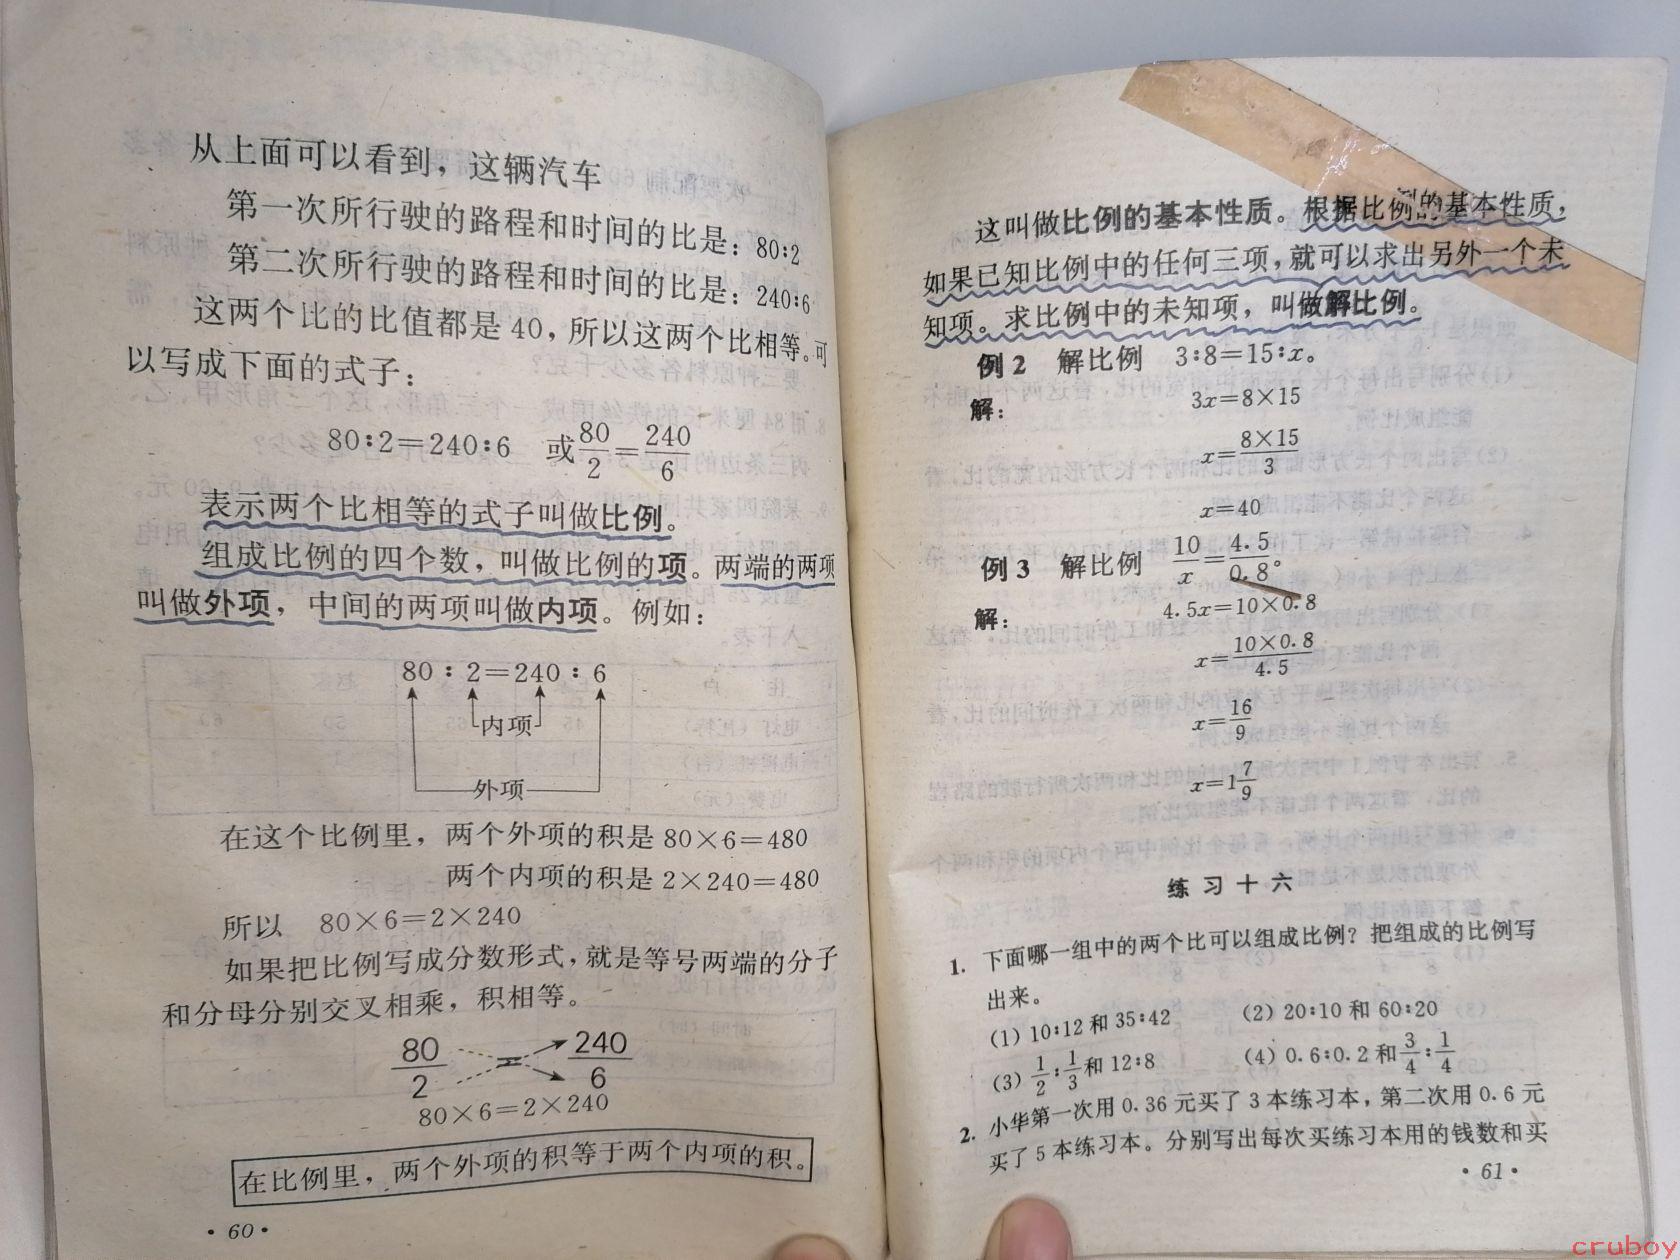 从上面可以看到，这辆汽车
第一次所行驶的路程和时间的比是：80∶2
第二次所行驶的路程和时间的比是：240∶6
这两个比的比值都是 40，所以这两个比相等。可
以写成下面的式子：
80∶2=240∶6 或 80/2=240/6
表示两个比相等的式子叫做比例。
组成比例的四个数，叫做比例的项。两端的两项
叫做外项，中间的两项叫做内项。例如：
80∶2=240∶6
内项
外项
在这个比例里，两个外项的积是 80×6=480
两个内项的积是 2×240=480
所以 80×6=2×240
如果把比例写成分数形式，就是等号两端的分子
和分母分别交叉相乘，积相等。
80/2 = 240/6
80×6=2×240
在比例里，两个外项的积等于两个内项的积。
·60·
这叫做比例的基本性质。根据比例的基本性质，
如果已知比例中的任何三项，就可以求出另外一个未
知项。求比例中的未知项，叫做解比例。
例2 解比例 3∶8=15∶x。
解： 3x=8×15
x=8×15/3
x=40
例3 解比例 10/x=4.5/0.8。
解： 4.5x=10×0.8
x=10×0.8/4.5
x=16/9
x=1 7/9
练习十六
1. 下面哪一组中的两个比可以组成比例？把组成的比例写
出来。
(1) 10∶12 和 35∶42 (2) 20∶10 和 60∶20
(3) 1/2∶1/3 和 12∶8 (4) 0.6∶0.2 和 3/4∶1/4
2. 小华第一次用 0.36 元买了 3 本练习本，第二次用 0.6 元
买了 5 本练习本。分别写出每次买练习本用的钱数和买
·61·
cruboy